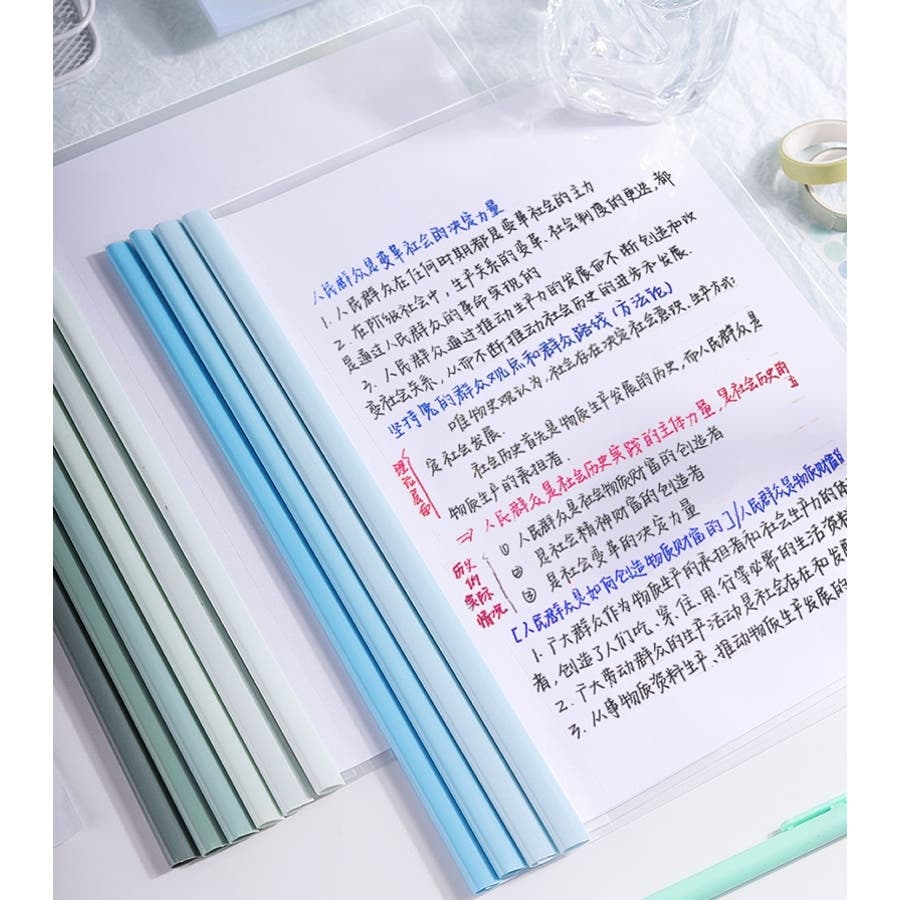 人民群众是变革社会的决定力量
1. 人民群众在任何时期都是变革社会的主力
2. 在阶级社会中，生产关系的变革、社会制度的更迭，都
是通过人民群众的革命实现的
3. 人民群众通过推动生产力的发展而不断创造和改
变社会关系，从而不断推动社会历史的进步和发展.
坚持党的群众观点和群众路线（方法论）
唯物史观认为，社会存在决定社会意识，生产方式
定社会发展.
社会历史首先是物质生产发展的历史，而人民群众是
物质生产的承担者.
理论层面
⇒ 人民群众是社会历史实践的主体力量，是社会历史的主
历史的实际情况
① 人民群众是社会物质财富的创造者
② 是社会精神财富的创造者
③ 是社会变革的决定力量
[人民群众是如何创造物质财富的]/人民群众是物质财富的
1. 广大群众作为物质生产的承担者和社会生产力的体
者，创造了人们吃、穿、住、用、行等必需的生活资料
2. 广大劳动群众的生产活动是社会存在和发展
3. 从事物质资料生产、推动物质生产发展的